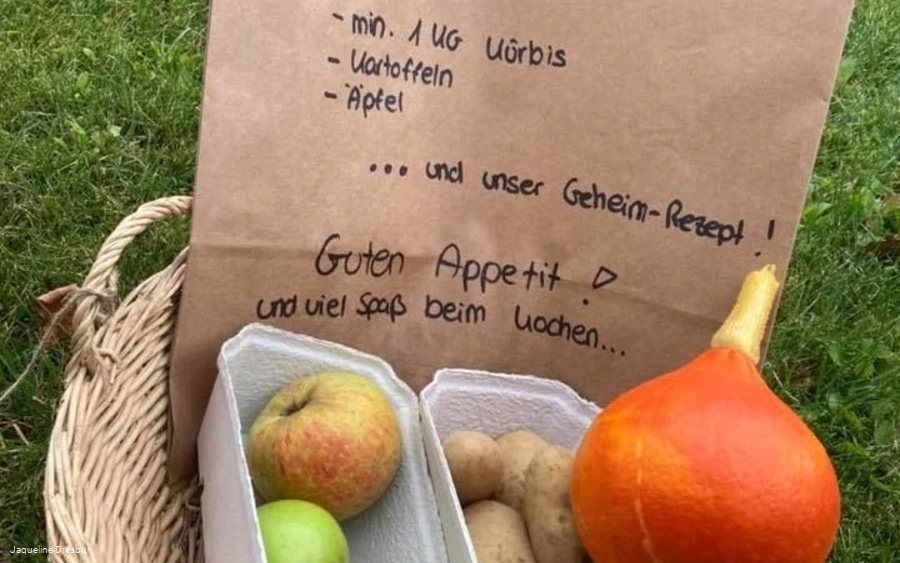 - min. 1 KG Kürbis
- Kartoffeln
- Äpfel
... und unser Geheim-Rezept !
Guten Appetit !
und viel Spaß beim Kochen...
Jaqueline Dresbur